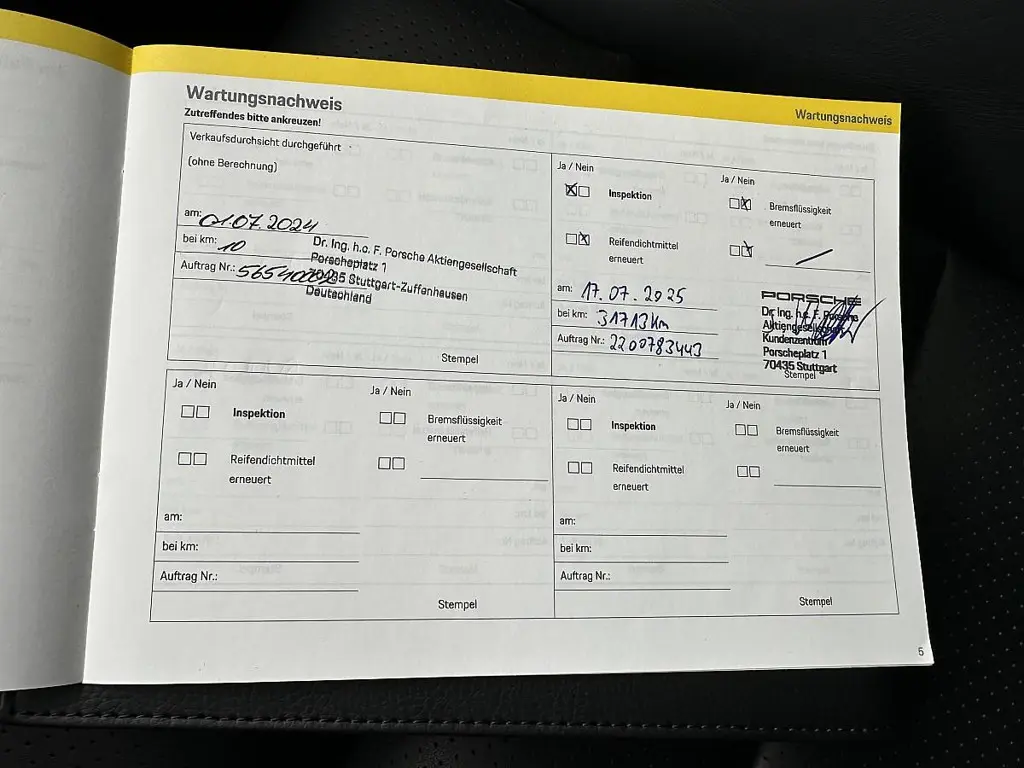 Wartungsnachweis
Wartungsnachweis
Zutreffendes bitte ankreuzen!
Verkaufsdurchsicht durchgeführt
(ohne Berechnung)
am: 01.07.2024
bei km: 10
Auftrag Nr.:
Dr. Ing. h.c. F. Porsche Aktiengesellschaft
Porscheplatz 1
70435 Stuttgart-Zuffenhausen
Deutschland
Stempel
Ja / Nein
Inspektion
Ja / Nein
Bremsflüssigkeit
erneuert
Reifendichtmittel
erneuert
am: 17.07.2025
bei km: 31713 km
Auftrag Nr.: 2200783443
PORSCHE
Dr. Ing. h.c. F. Porsche
Aktiengesellschaft
Kundenzentrum
Porscheplatz 1
70435 Stuttgart
Stempel
Ja / Nein
Inspektion
Ja / Nein
Bremsflüssigkeit
erneuert
Reifendichtmittel
erneuert
am:
bei km:
Auftrag Nr.:
Stempel
Ja / Nein
Inspektion
Ja / Nein
Bremsflüssigkeit
erneuert
Reifendichtmittel
erneuert
am:
bei km:
Auftrag Nr.:
Stempel
5